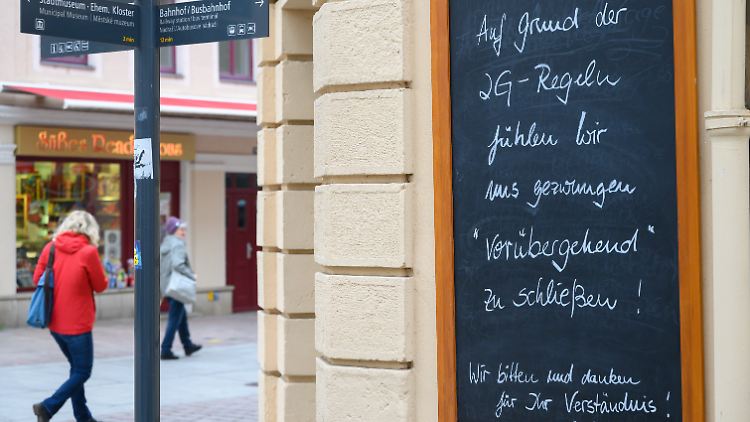 Stadtmuseum · Ehem. Kloster
Municipal Museum · Městské muzeum
2 min
Bahnhof / Busbahnhof
Railway station / bus terminal
Nádraží / Autobusové nádraží
12 min
Süßes Rendezvous
Auf Grund der
2G-Regeln
fühlen wir
uns gezwungen
"Vorübergehend"
zu schließen!
Wir bitten und danken
für Ihr Verständnis!